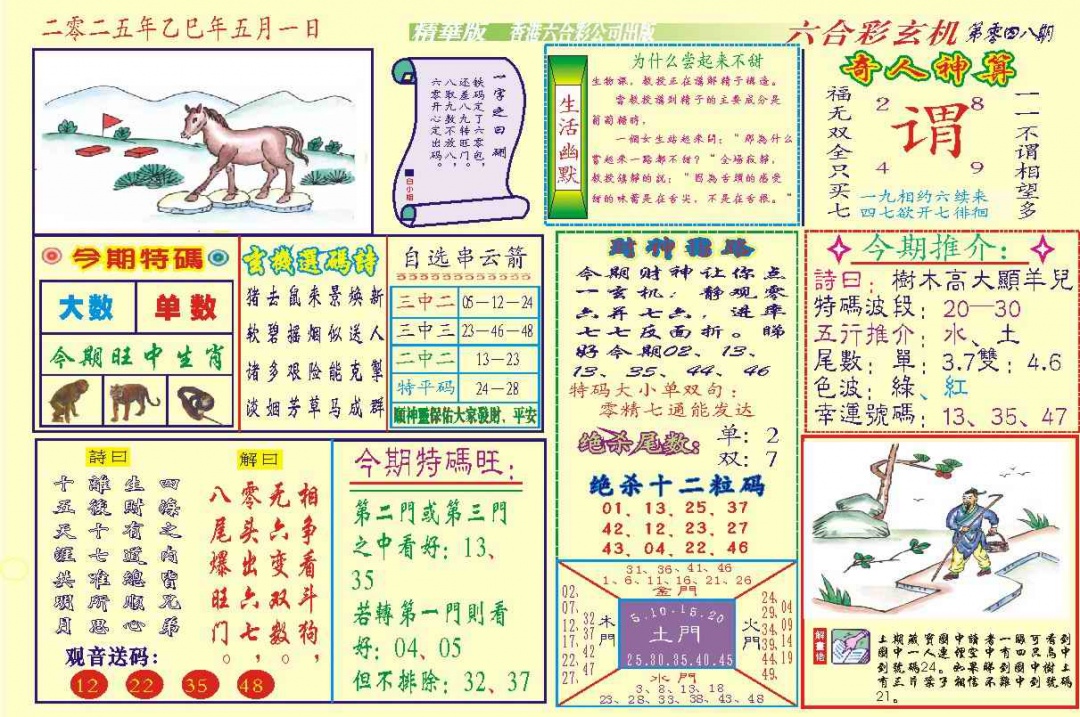 二零二五年乙巳年五月一日
精華版 香港六合彩公司出版
六合彩玄机 第零四八期
一字之曰:硎
铁码定了六零包，
还差九九转旺门。
八取九数不放八，
六零开心定出码。
白小姐
生活幽默
为什么尝起来不甜
生物课，教授正在讲解精子构造。
当教授讲到精子的主要成分是
葡萄糖时，
一個女生站起来问：“那為什么
尝起来一點都不甜？”全场寂静，
教授镇静的说：“因為舌頭的感受
甜的味蕾是在舌尖，不是在舌根。”
奇人神算
福无双全只买七
2 8
谓
4 9
一一不谓相望多
一九相约六续来
四七欲开七徘徊
今期特碼
大数 单数
今期旺中生肖
玄機選碼詩
猪去鼠来景焕新
软碧摇烟似送人
诸多艰险能克掣
淡烟芳草马成群
自选串云箭
三中二 05—12—24
三中三 23—46—48
二中二 13—23
特平码 24—28
顺神靈保佑大家發財、平安
财神指路
今期财神让你点
一玄机：静观零
六并七六，进率
七七反面折。睇
好今期02、13、
13、35、44、46
特码大小单双句：
零精七通能发达
绝杀尾数： 单：2
双：7
绝杀十二粒码
01、13、25、37
42、12、23、27
43、04、22、46
今期推介：
詩曰：樹木高大顯羊兒
特碼波段：20—30
五行推介：水、土
尾數：單：3.7雙：4.6
色波：綠、紅
幸運號碼：13、35、47
詩曰
四海之内皆兄弟
生財有道總順心
離後十七准所思
十五天涯共明月
解曰
相争看斗狗，
无六变双数。
零头出六七，
八尾爆旺门。
观音送码：
12 22 35 48
今期特碼旺：
第二門或第三門
之中看好：13、
35
若轉第一門則看
好：04、05
但不排除：32、37
31、36、41、46
1、6、11、16、21、26
金門
02、07、12、17、22、27、
32 37 42 47
木門
5.10.15.20
土門
25.30.35.40.45
火門
24、29、34、39、44、49、
04 09 14 19
水門
3、8、13、18
23、28、33、38、43、48
解畫信
上期藏寶圖中讀者一睇可看到
圖中一人連煙空中有四只鳥中
到號碼24。如果睇到圖中樹上
有三片葉子相信不難中到號碼
21。